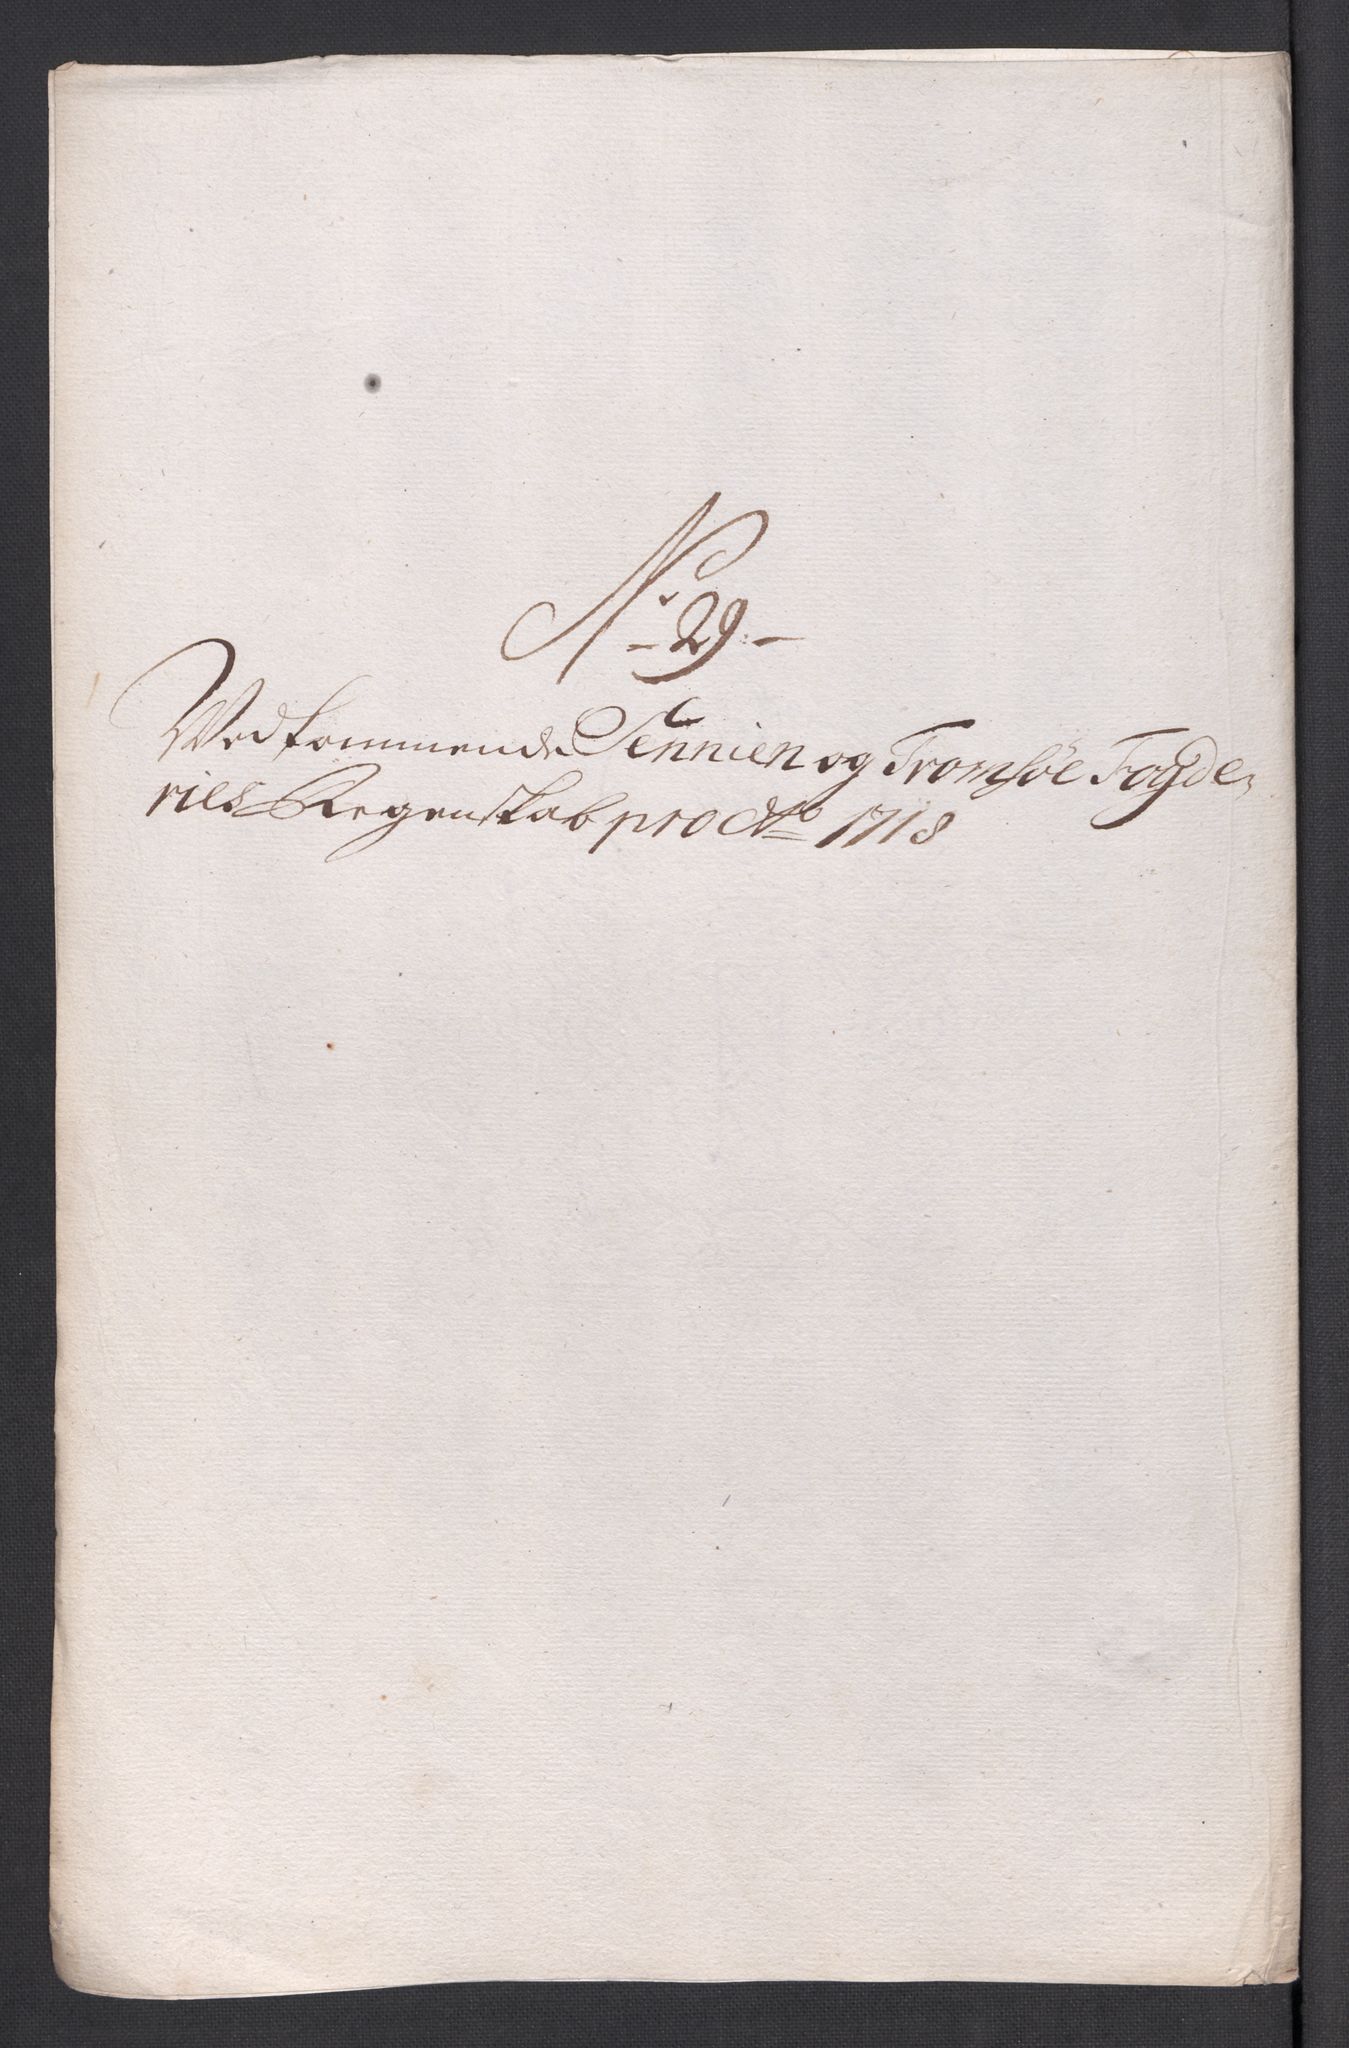 No
- 29 -
Wedkommende Sennien og Tromsöe Fogde-
riers Regenskab pro Ao 1718